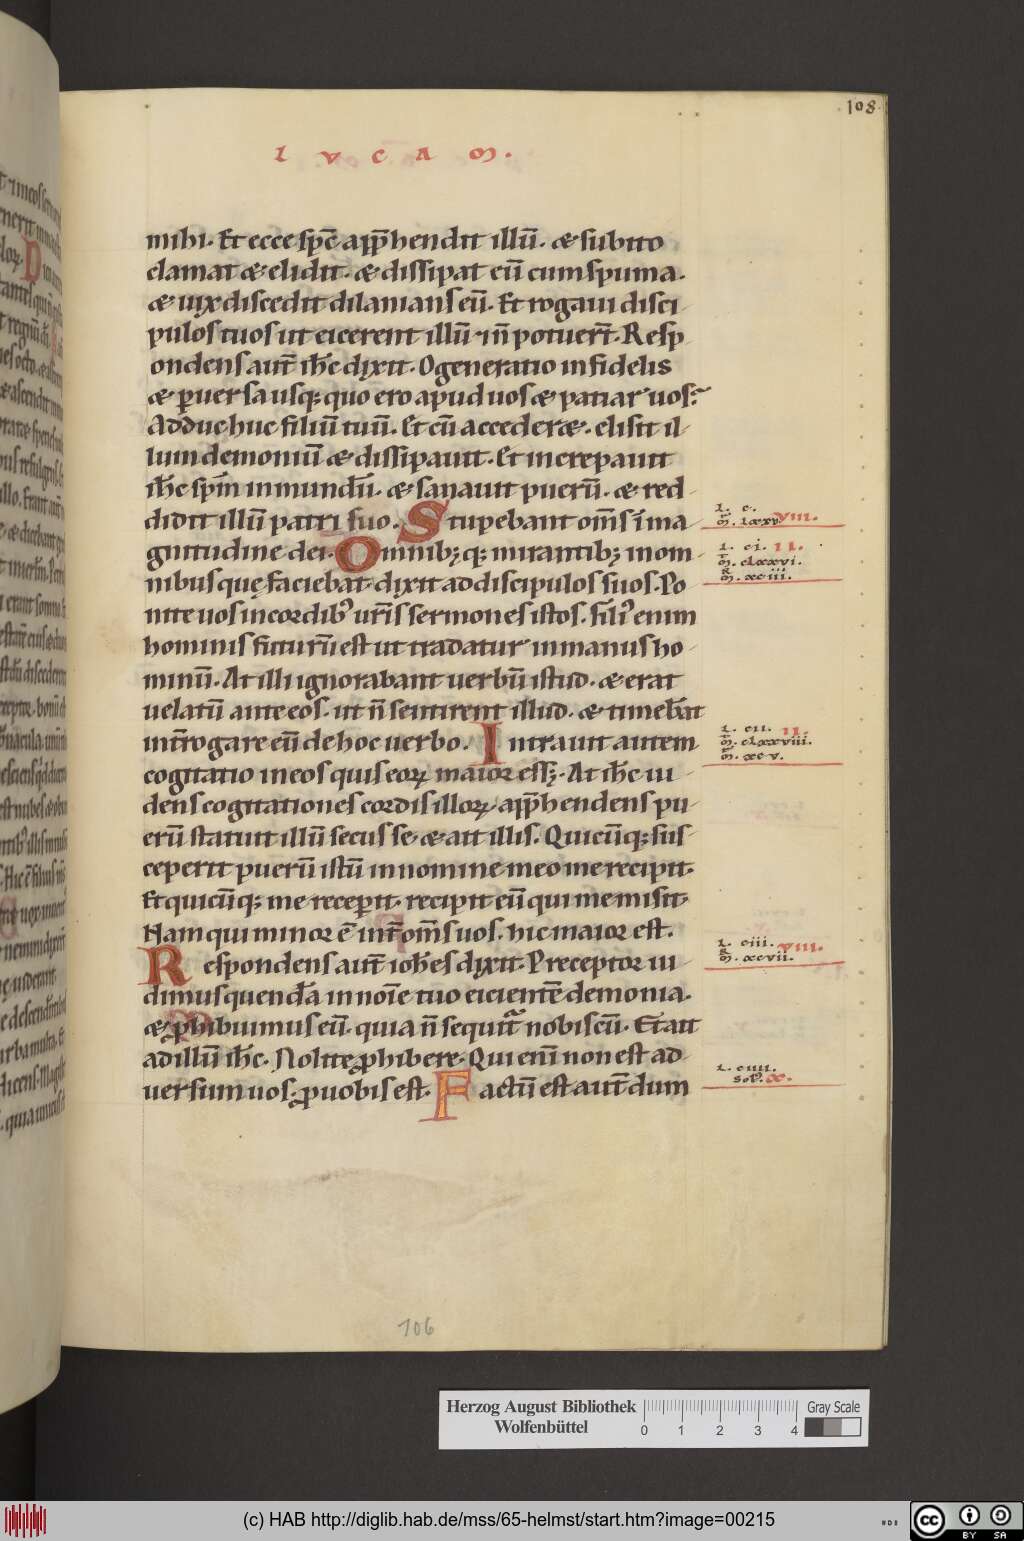 108
LVCAM.
mihi. Et ecce sp̄c app̄hendit illū. & subito
clamat & elidit. & dissipat eū cum spuma.
& uix discedit dilanians eū. Et rogaui disci
pulos tuos ut eicerent illū ⁊ n̄ potuer̄t. Resp
ondens aut̄ ih̄c dixit. O generatio infidelis
& ꝑuersa usq; quo ero apud uos & patiar uos?
Adduc huc filiū tuū. Et cū accederet. elisit il-
lum demoniū & dissipauit. Et increpauit
ih̄c sp̄m inmundū. & sanauit puerū. & red-
didit illū patri suo. Stupebant om̄s ī ma-
gnitudine dei. Omnib; q; mirantib; in om-
nibus quę faciebat. dixit ad discipulos suos. Po-
nite uos in cordib' ur̄is sermones istos. fili' enim
hominis futurū est ut tradatur in manus ho-
minū. At illi ignorabant uerbū istud. & erat
uelatū ante eos. ut n̄ sentirent illud. & timebāt
int̄rogare eū de hoc uerbo. Intrauit autem
cogitatio in eos quis eoꝝ maior ess;. At ih̄c ui-
dens cogitationes cordis illoꝝ. app̄hendens pu-
erū statuit illū secus se. & ait illis. Quicūq; sus-
ceperit puerū istū in nomine meo me recipit.
Et quicūq; me receperit. recipit eū qui me misit.
Nam qui minor ē int̄ om̄s uos. hic maior est.
Respondens aut̄ ioh̄es dixit. Preceptor ui-
dimus quendā in noīe tuo eicientē demonia.
& ꝓhibuimus eū. quia n̄ sequit᷑ nobiscū. Et ait
ad illū ih̄c. Nolite ꝓhibere. Qui enī non est ad-
uersum uos. ꝓ uobis est. Factū est aut̄ dum
l. c.
m̄. lxxv. VIII.
l. ci. II.
m̄. clxxvi.
m̄. xciii.
l. cii. II.
m̄. clxxviii.
m̄. xcv.
l. ciii. VIII.
m̄. xcvii.
l. ciiii.
sol'. X.
106
Herzog August Bibliothek
Wolfenbüttel
0 1 2 3 4
Gray Scale
(c) HAB http://diglib.hab.de/mss/65-helmst/start.htm?image=00215
cc BY SA